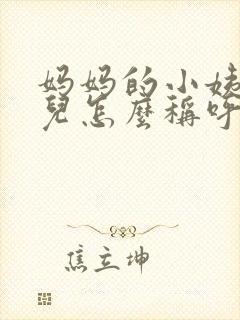 妈妈的小姨
兒怎麼稱呼
焦立坤